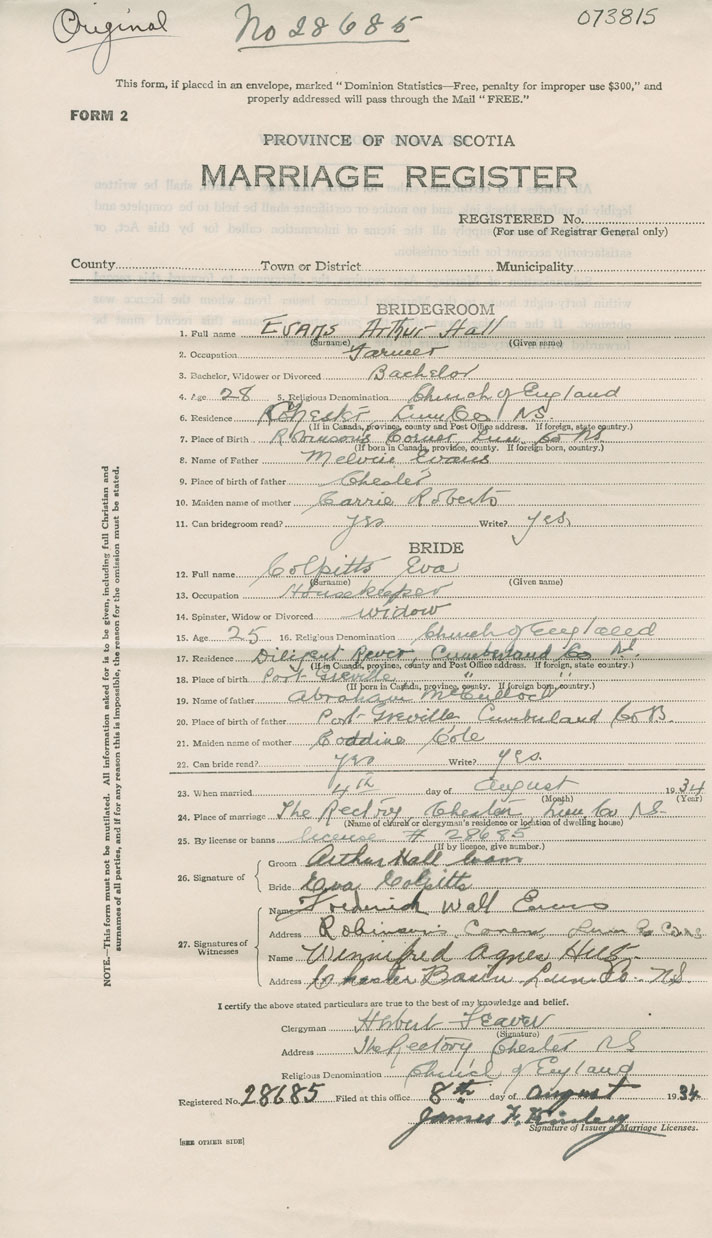 Original
No 28685
073815
This form, if placed in an envelope, marked "Dominion Statistics—Free, penalty for improper use $300," and
properly addressed will pass through the Mail "FREE."
FORM 2
PROVINCE OF NOVA SCOTIA
MARRIAGE REGISTER
REGISTERED No.
(For use of Registrar General only)
County Town or District Municipality
BRIDEGROOM
1. Full name Evans Arthur Hall
(Surname) (Given name)
2. Occupation Farmer
3. Bachelor, Widower or Divorced Bachelor
4. Age 28 5. Religious Denomination Church of England
6. Residence Chester Lun Co NS.
(If in Canada, province, county and Post Office address. If foreign, state country.)
7. Place of Birth Robinsons Corner Lun Co NS.
(If born in Canada, province, county. If foreign born, country.)
8. Name of Father Melvin Evans
9. Place of birth of father Chester
10. Maiden name of mother Carrie Roberts
11. Can bridegroom read? yes Write? yes
BRIDE
12. Full name Colpitts Eva
(Surname) (Given name)
13. Occupation Housekeeper
14. Spinster, Widow or Divorced widow
15. Age 25 16. Religious Denomination Church of England
17. Residence Diligent River, Cumberland Co N.S.
(If in Canada, province, county and Post Office address. If foreign, state country.)
18. Place of birth Port Greville " "
(If born in Canada, province, county. If foreign born, country.)
19. Name of father Abraham McCulloch
20. Place of birth of father Port Greville Cumberland Co
21. Maiden name of mother Cole
22. Can bride read? yes Write? yes.
23. When married 4th day of August 1934
(Month) (Year)
24. Place of marriage The Rectory, Chester Lun Co NS-
(Name of church or clergyman's residence or location of dwelling house)
25. By license or banns license # 28685
(If by licence, give number.)
26. Signature of Groom Arthur Hall Evans
Bride Eva Colpitts
27. Signatures of Witnesses
Name Frederick Wall Evans
Address Robinson's Corner Lun Co
Name Winnifred Agnes
Address Chester Basin Lun Co. N.S.
NOTE.—This form must not be mutilated. All information asked for is to be given, including full Christian and
surnames of all parties, and if for any reason this is impossible, the reason for the omission must be stated.
I certify the above stated particulars are true to the best of my knowledge and belief.
Clergyman Herbert Feaver
(Signature)
Address The Rectory Chester NS
Religious Denomination Church of England
Registered No. 28685 Filed at this office 8th day of August 1934
James F. Kinley
Signature of Issuer of Marriage Licenses.
[SEE OTHER SIDE]